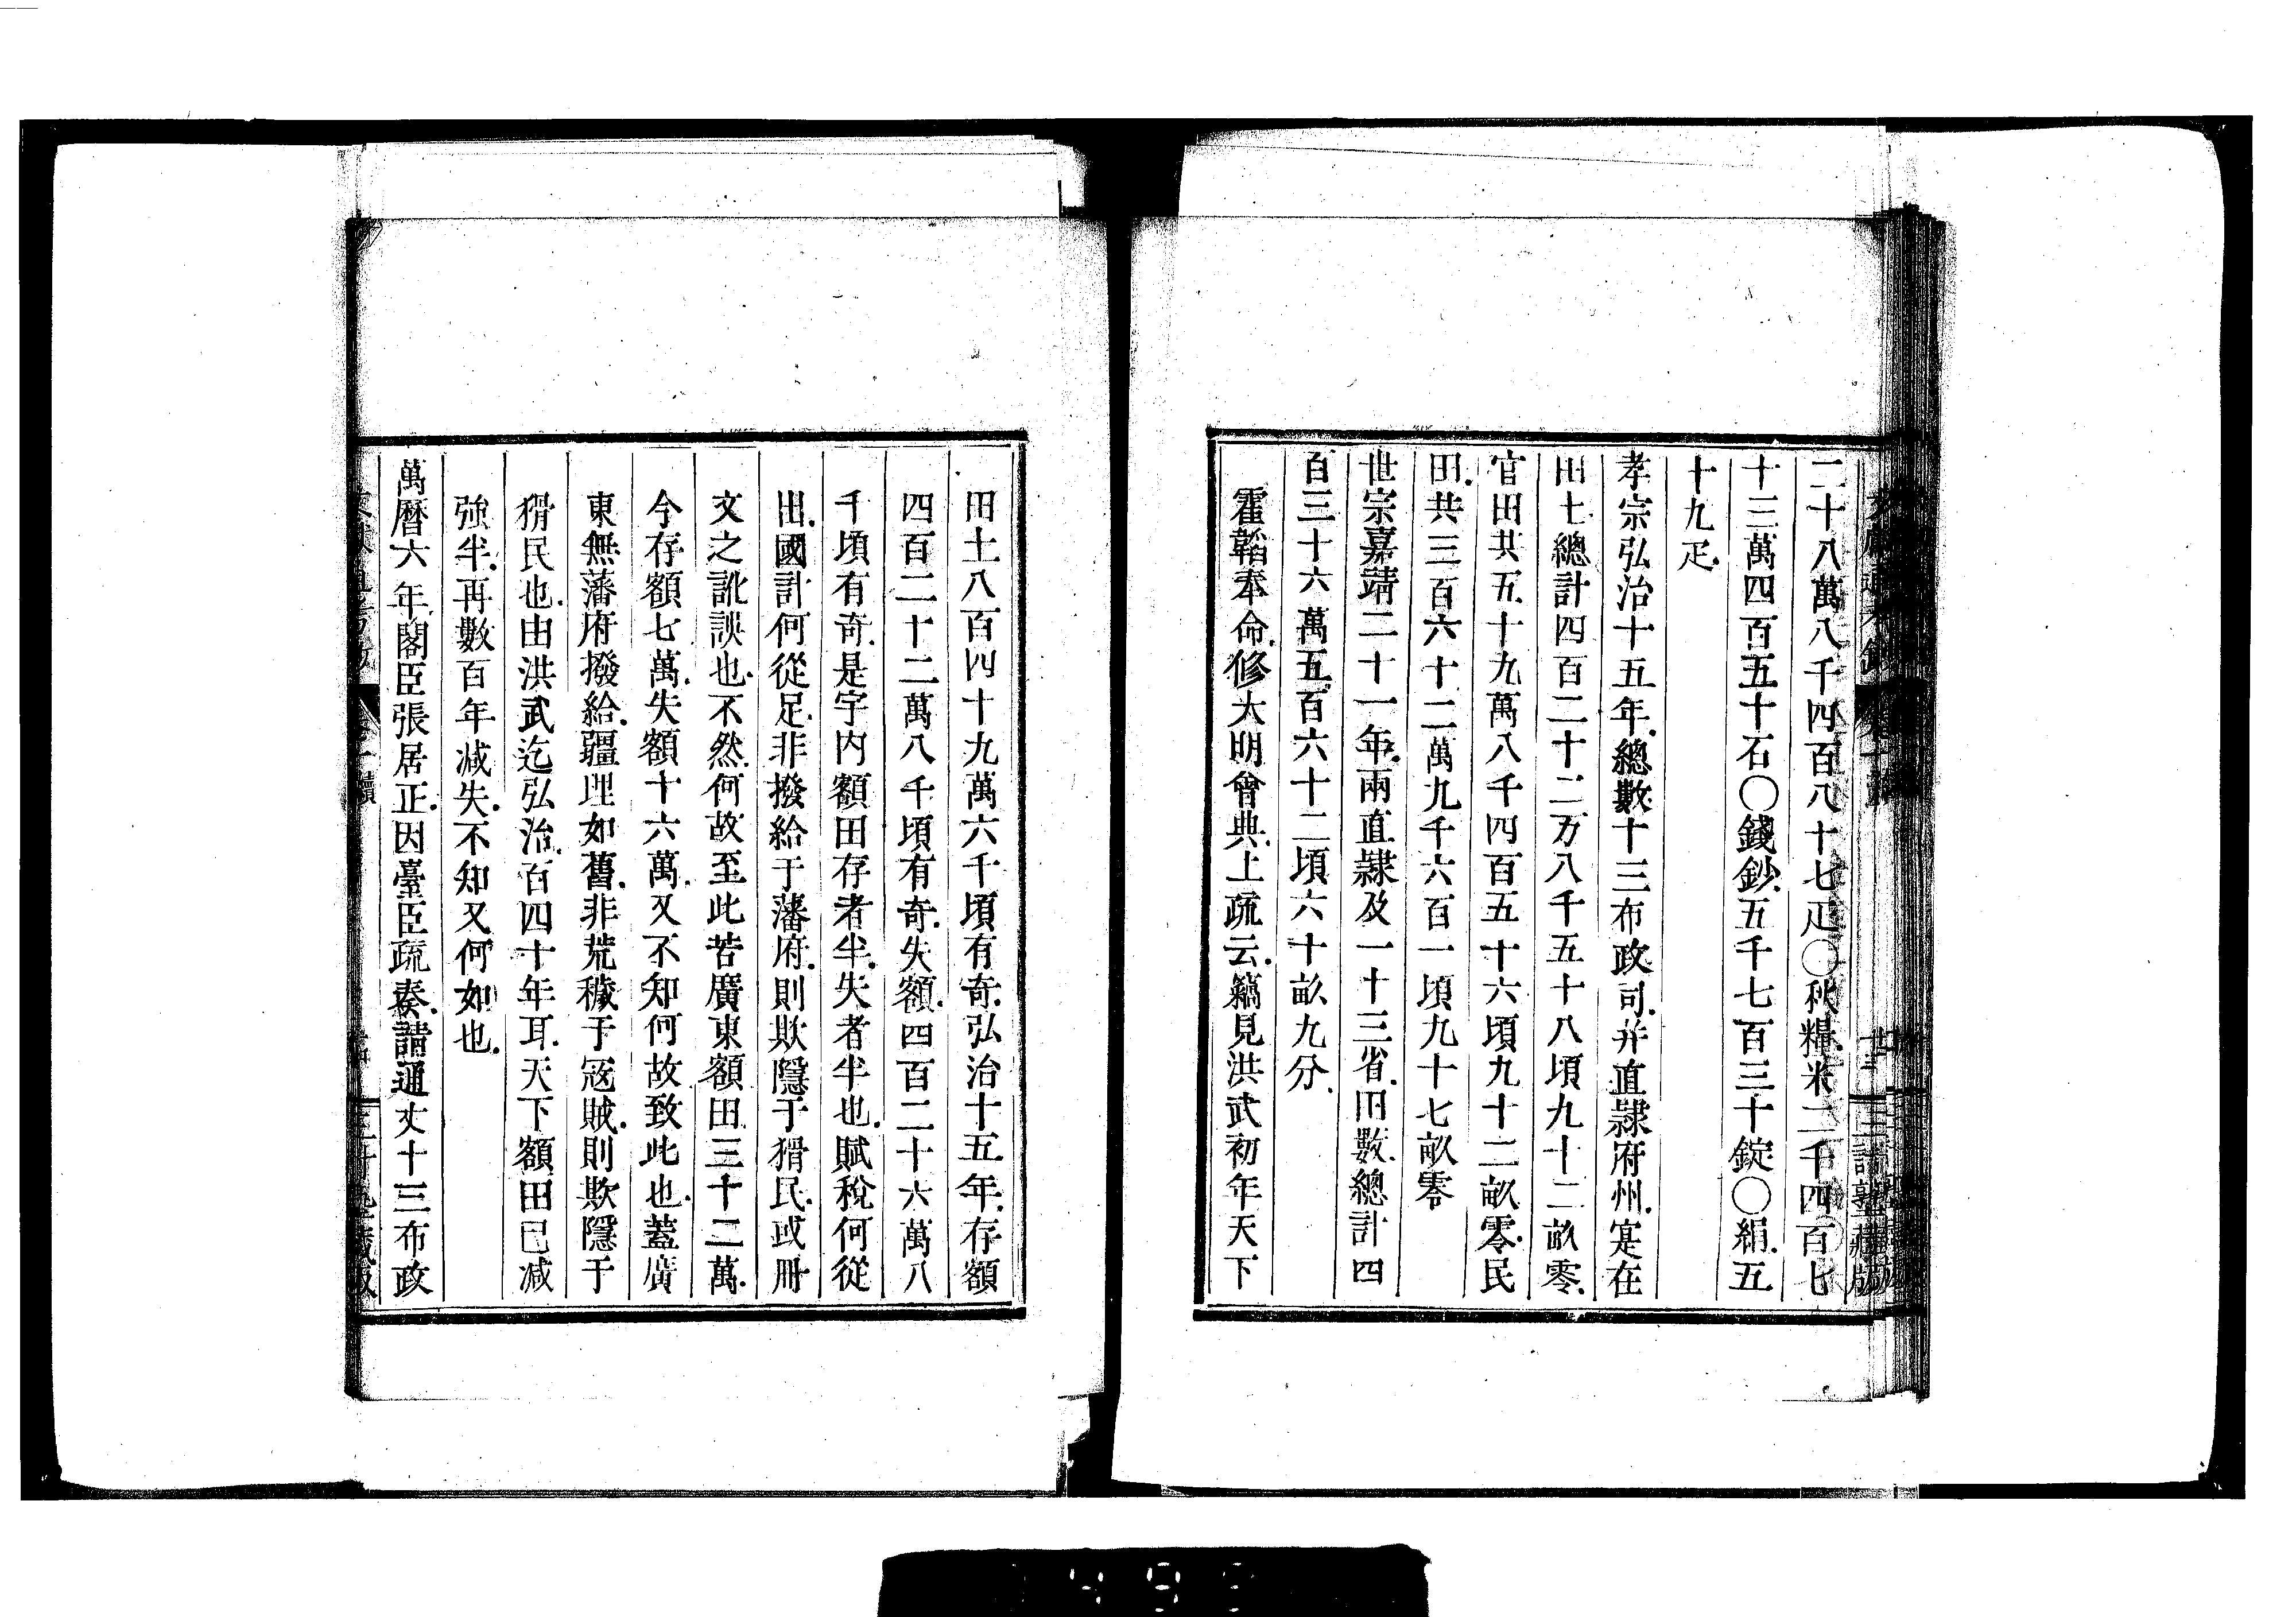 二十八萬八千四百八十七疋〇秋糧米二千四百七
十三萬四百五十石〇錢鈔五千七百三十錠〇絹五
十九疋
孝宗弘治十五年總數十三布政司并直隸府州寔在
田七總計四百二十二万八千五十八頃九十二畝零
官田共五十九萬八千四百五十六頃九十二畝零民
田共三百六十二萬九千六百一頃九十七畝零
世宗嘉靖二十一年兩直隸及一十三省田數總計四
百三十六萬五百六十二頃六十畝九分
霍韜奉命修大明會典上疏云竊見洪武初年天下
田土八百四十九萬六千頃有奇弘治十五年存額
四百二十二萬八千頃有奇失額四百二十六萬八
千頃有奇是宇內額田存者半失者半也賦稅何從
出國計何從足非撥給于藩府則欺隱于猾民或冊
文之訛誤也不然何故至此若廣東額田三十二萬
今存額七萬失額十六萬又不知何故致此也蓋廣
東無藩府撥給疆理如舊非荒穢于寇賊則欺隱于
猾民也由洪武迄弘治百四十年耳天下額田已減
強半再數百年減失不知又何如也
萬曆六年閣臣張居正因臺臣疏奏請通丈十三布政